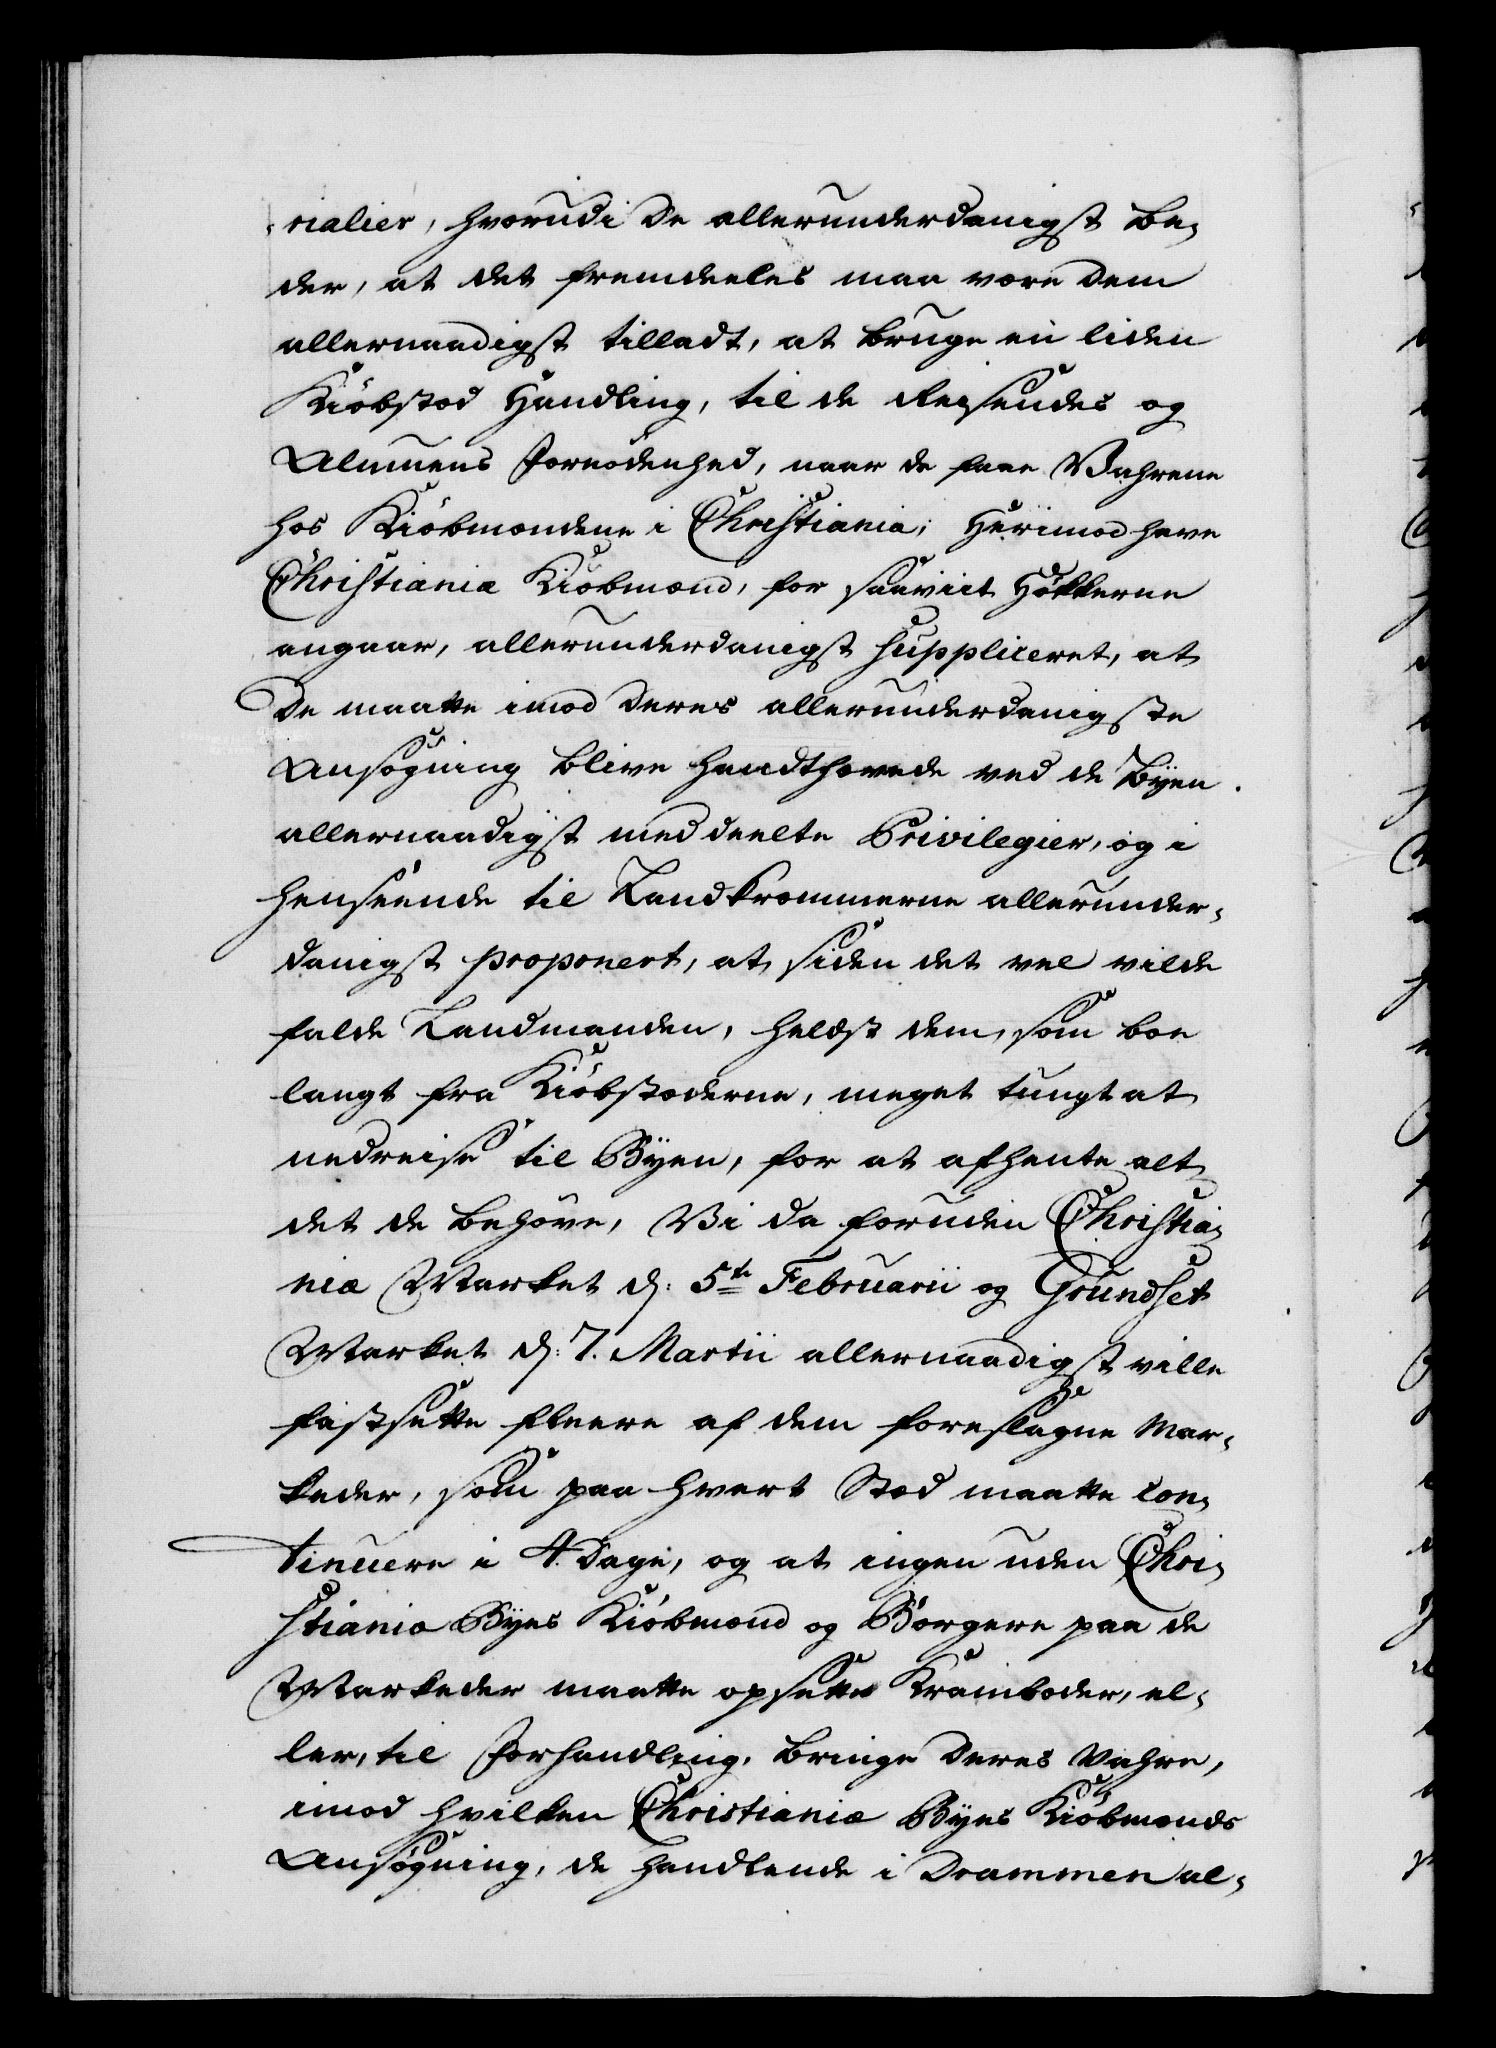 rialier, hvorudi De allerunderdanigst be-
der, at det fremdeeles maa være dem
allernaadigst tilladt, at bruge en liden
Kiöbstæd Handling, til de Reisendes og
Almuens Fornödenhed, naar de faae Vahrene
hos Kiöbmændene i Christiania; Herimod have
Christianiæ Kiöbmænd, for saavit Hökkerne
angaar, allerunderdanigst suppliceret, at
De maatte imod deres allerunderdanigste
Ansögning blive handthævede ved de Byen
allernaadigst meddeelte Privilegier, og i
henseende til Landkræmmerne allerunder-
danigst proponert, at, siden det vel vilde
falde Landmanden, heldst dem, som boe
langt fra Kiöbstæderne, meget tungt at
nedreise til Byen, for at afhente alt
det de behöve, Vi da foruden Christia-
niæ Market d: 5te Februarii og Grundset
Market d: 7. Martii allernaadigst ville
fastsette fleere af dem foreslagne Mar-
keder, som paa hvert Stæd maatte con-
tinuere i 4. Dage, og at ingen uden Chri-
stianiæ Byes Kiöbmænd og Borgere paa de
Markeder maatte opsette Kramboder, el-
ler, til Forhandling, bringe deres Vahre,
imod hvilken Christianiæ Byes Kiöbmænds
Ansögning, de handlende i Drammen al-